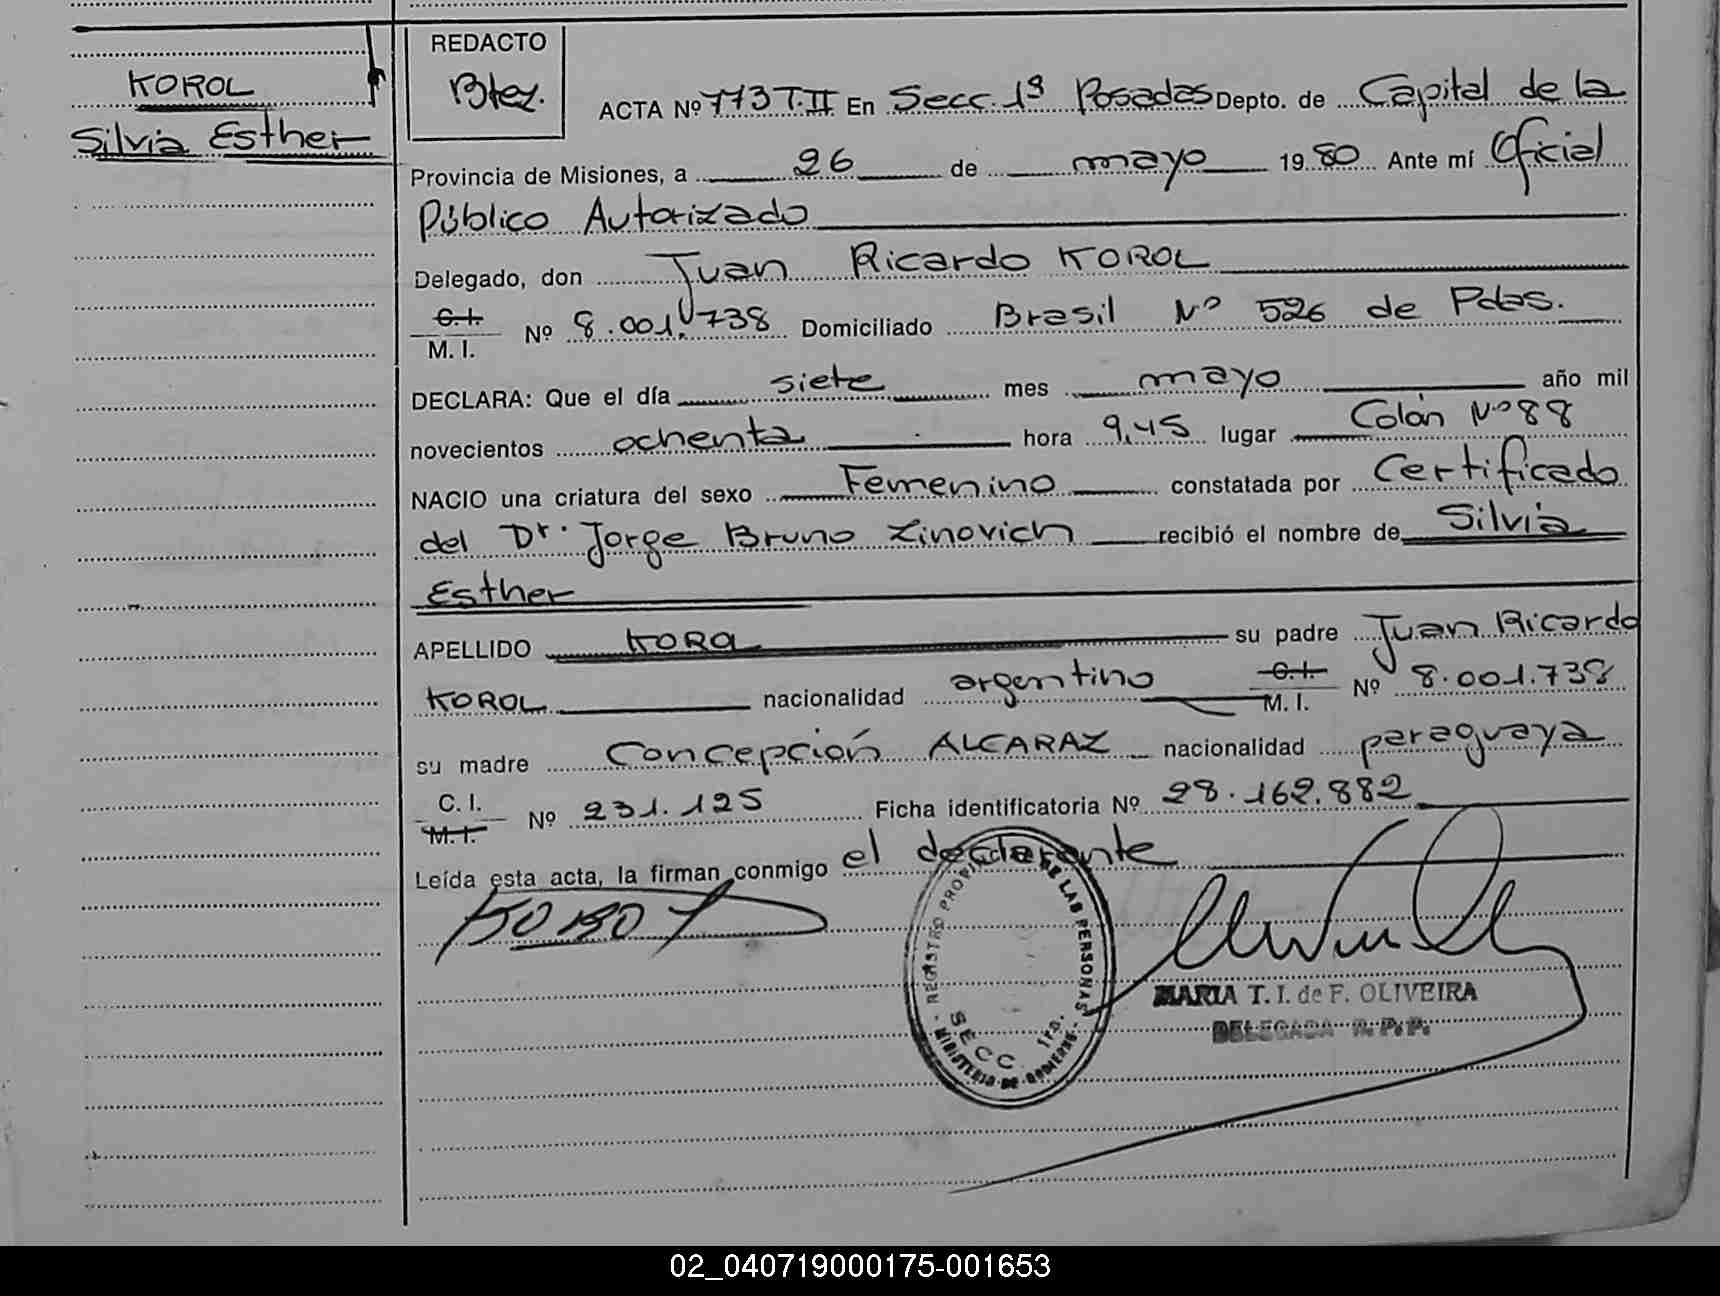 KOROL
Silvia Esther
REDACTO
Btez.
ACTA Nº 773 T. II En Secc. 1ª Posadas Depto. de Capital de la
Provincia de Misiones, a 26 de mayo 1980 Ante mí Oficial
Público Autorizado
Delegado, don Juan Ricardo KOROL
C. I.
M. I. Nº 8.001.738 Domiciliado Brasil Nº 526 de Pdas.
DECLARA: Que el día siete mes mayo año mil
novecientos ochenta hora 9,45 lugar Colón Nº 88
NACIO una criatura del sexo Femenino constatada por Certificado
del Dr. Jorge Bruno Zinovich recibió el nombre de Silvia
Esther
APELLIDO KOROL su padre Juan Ricardo
KOROL nacionalidad argentino C. I. M. I. Nº 8.001.738
su madre Concepción ALCARAZ nacionalidad paraguaya
C. I.
M. I. Nº 231.125 Ficha identificatoria Nº 28.162.882
Leída esta acta, la firman conmigo el declarante
REGISTRO PROV DE LAS PERSONAS
SECC. 1ra.
MINISTERIO DE GOBIERNO
MARIA T. I. de F. OLIVEIRA
DELEGADA R. P. P.
02_040719000175-001653